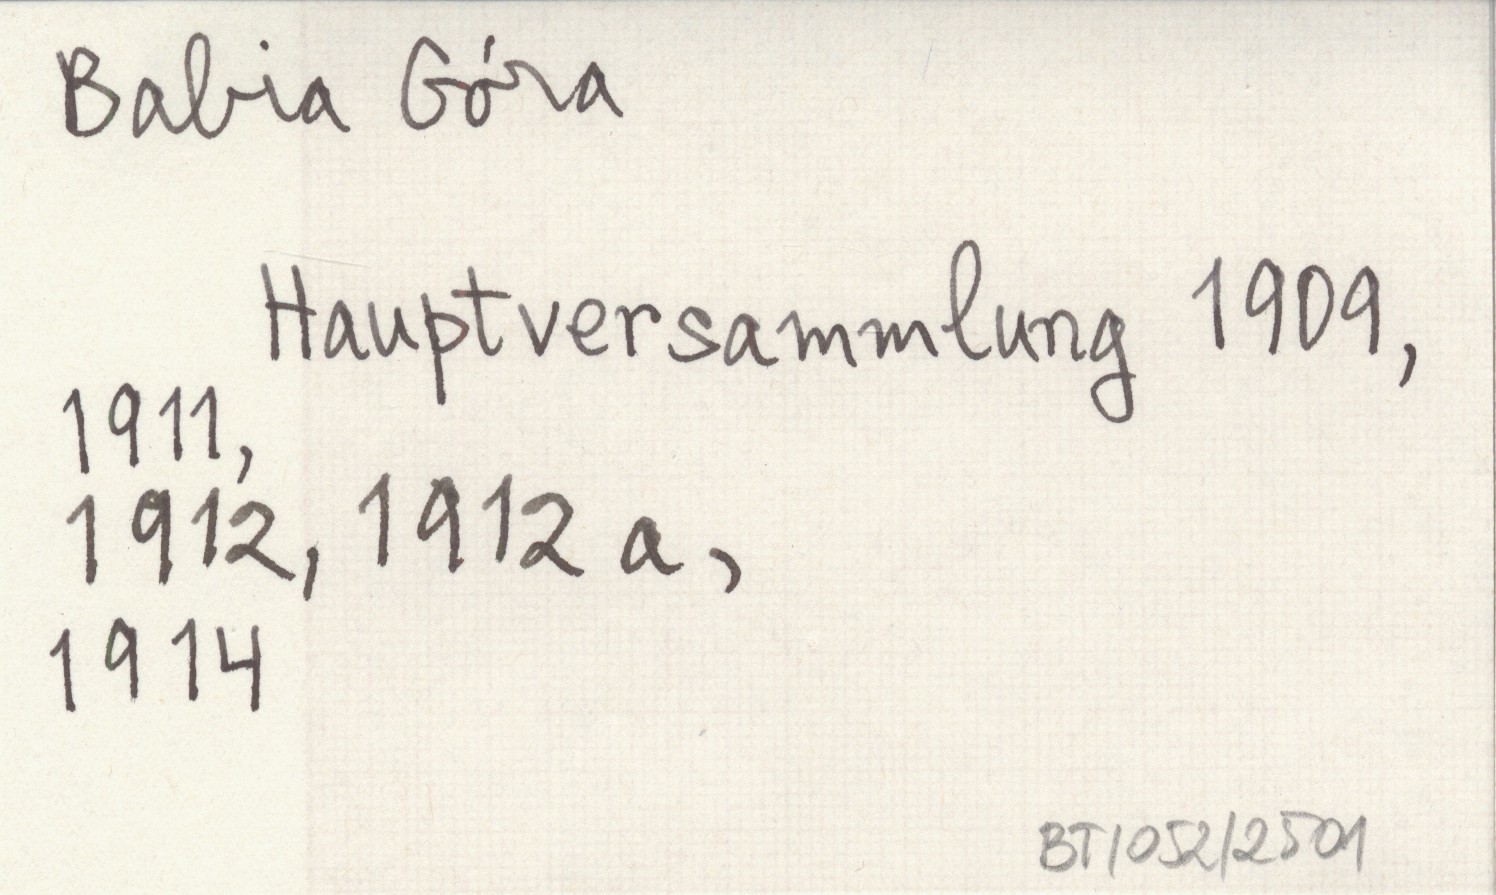 Babia Góra
Hauptversammlung 1909,
1911,
1912, 1912 a,
1914
BT/052/2501